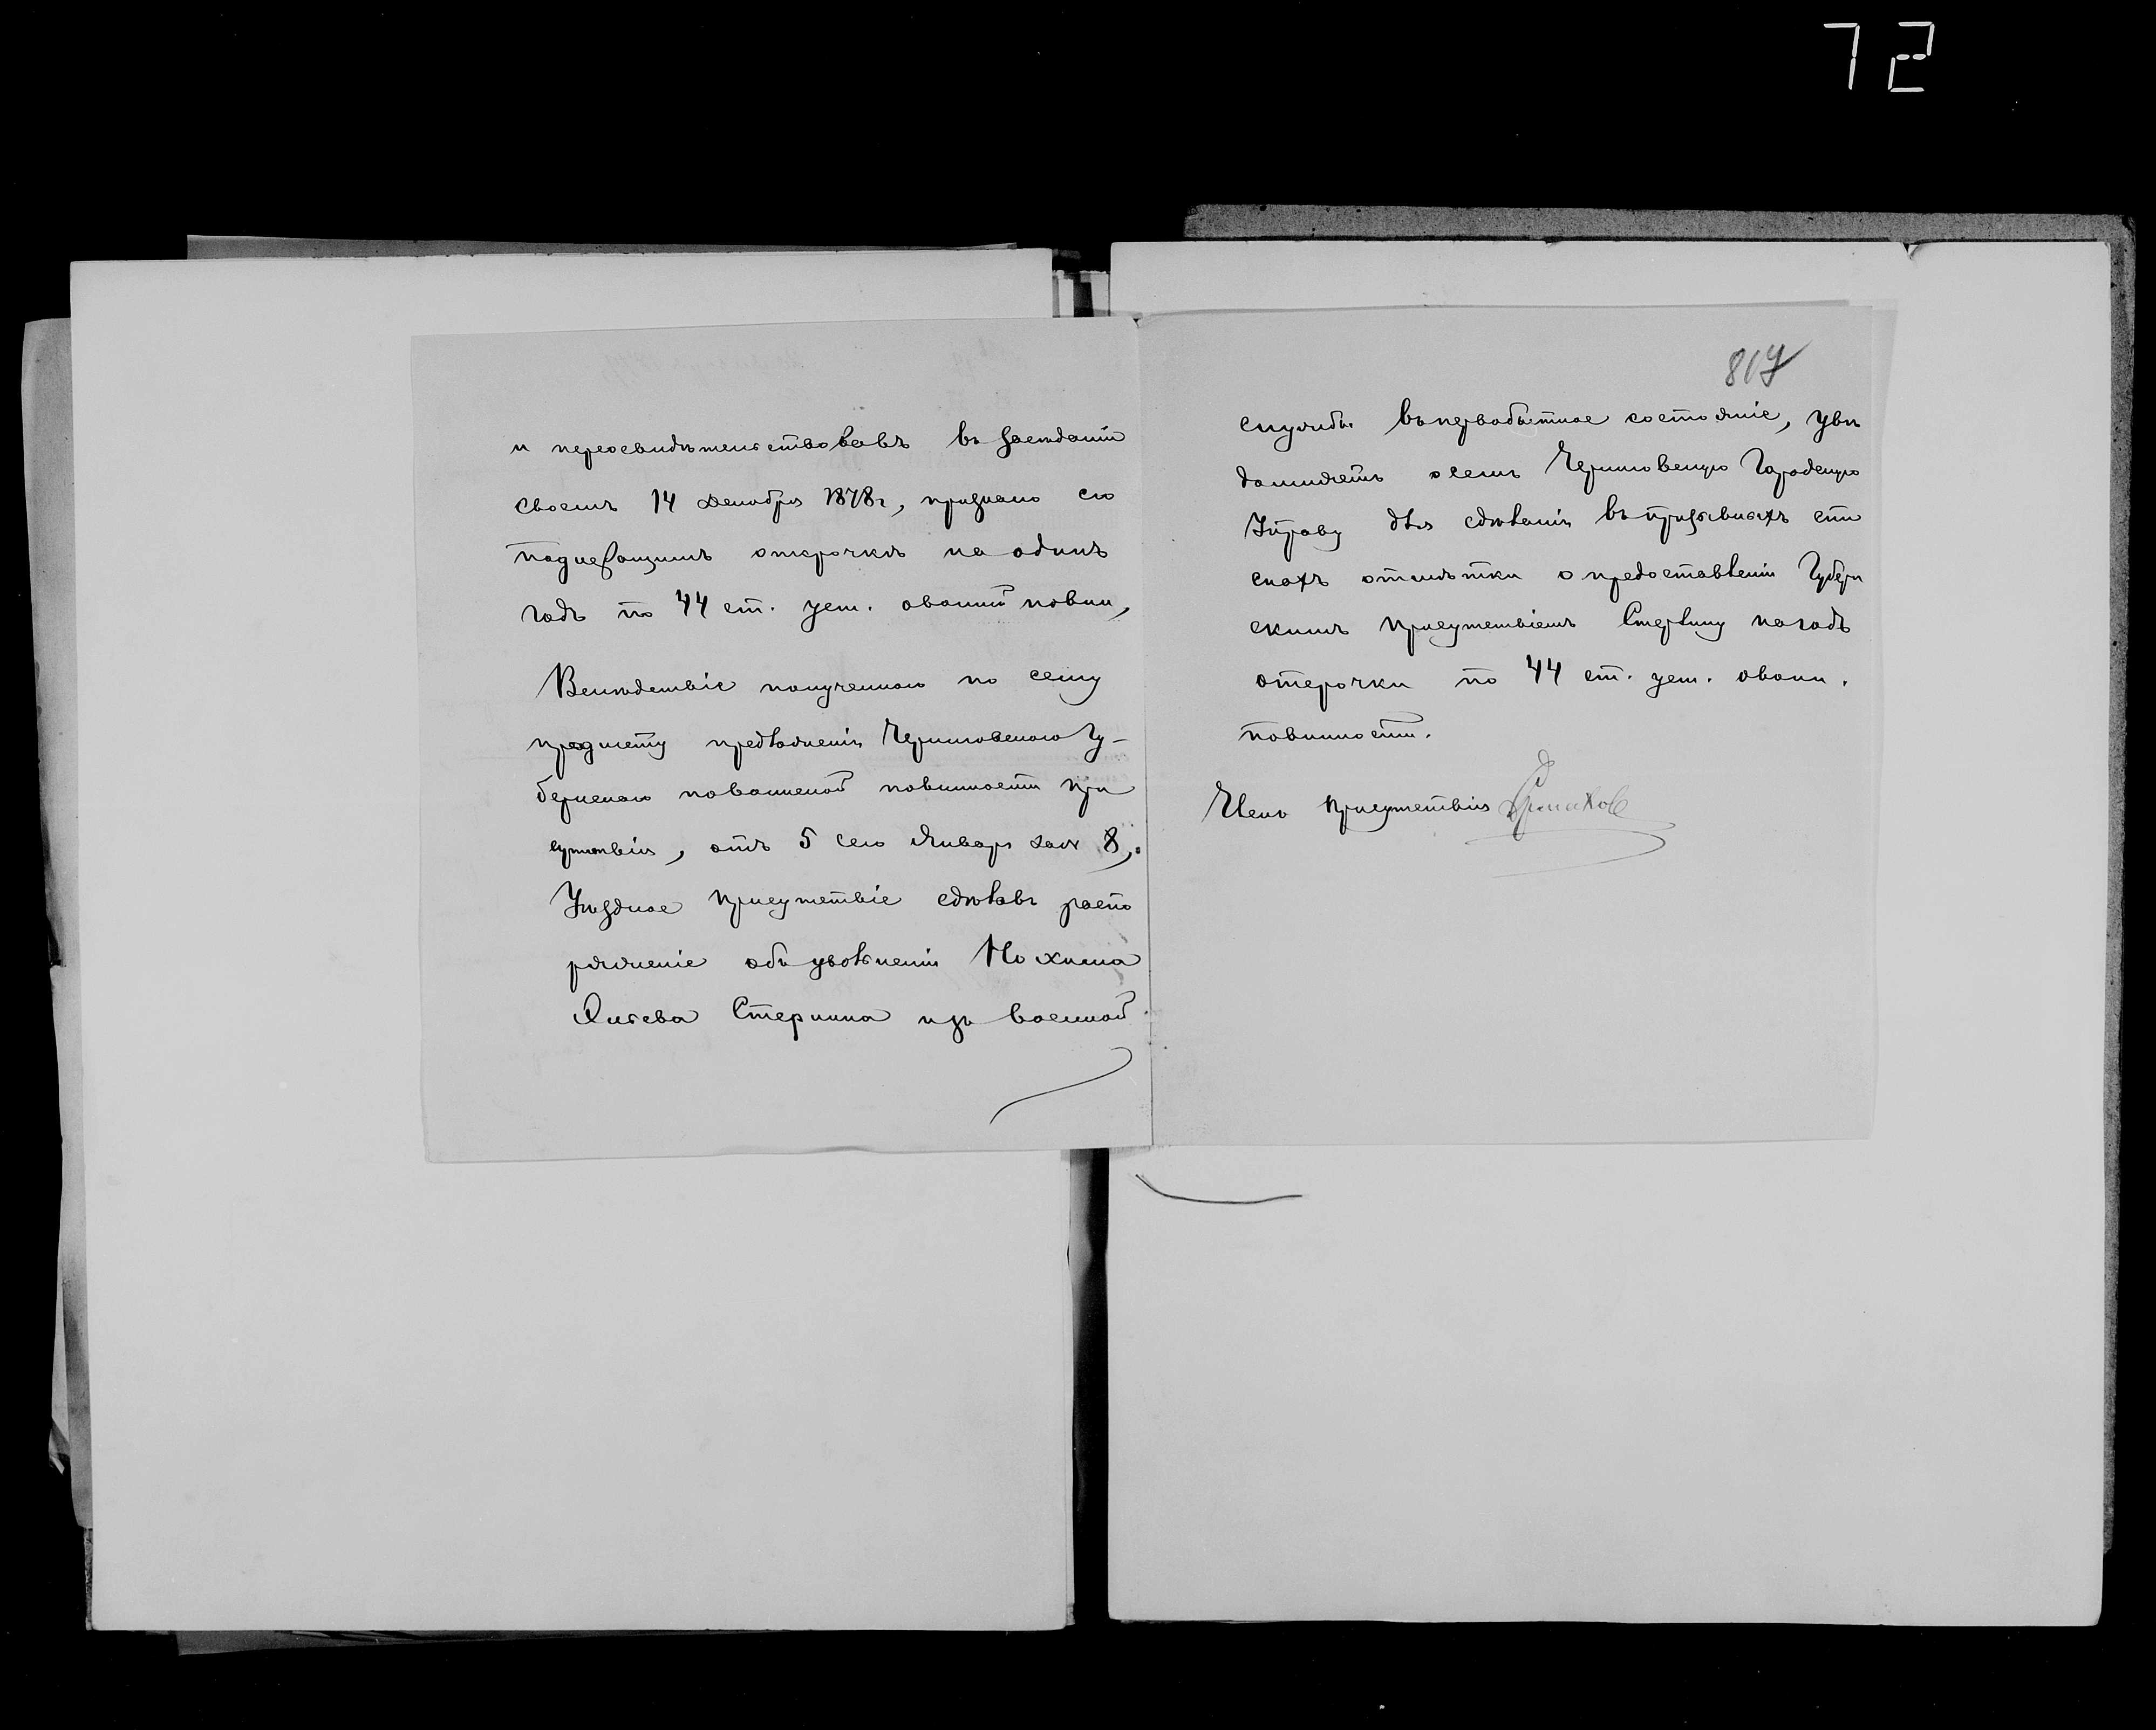 72
и переосвидѣтельствовавъ въ засѣданіи
своемъ 14 Декабря 1878 г, признало его
подлежащимъ отсрочкѣ на одинъ
годъ по 44 ст. уст. овоинй повин,
Вслѣдствіе полученнаго по сему
предмету предложенія Черниговскаго Гу-
бернскаго повоинской повинности При
сутствія, отъ 5 сего Января за № 8,
Уѣздное Присутствіе сдѣлавъ распо
ряженіе объ увольненіи Нохима
Стеркина изъ военной
817
службы въ первобытное состояніе, увѣ
домляетъ о семъ Черниговскую Городскую
Управу для сдѣланія въ призывныхъ спи
скахъ отмѣтки о предоставленіи Губерн
скимъ Присутствіемъ Стеркину на годъ
отсрочки по 44 ст. уст. овоин.
повинности.
Членъ Присутствія